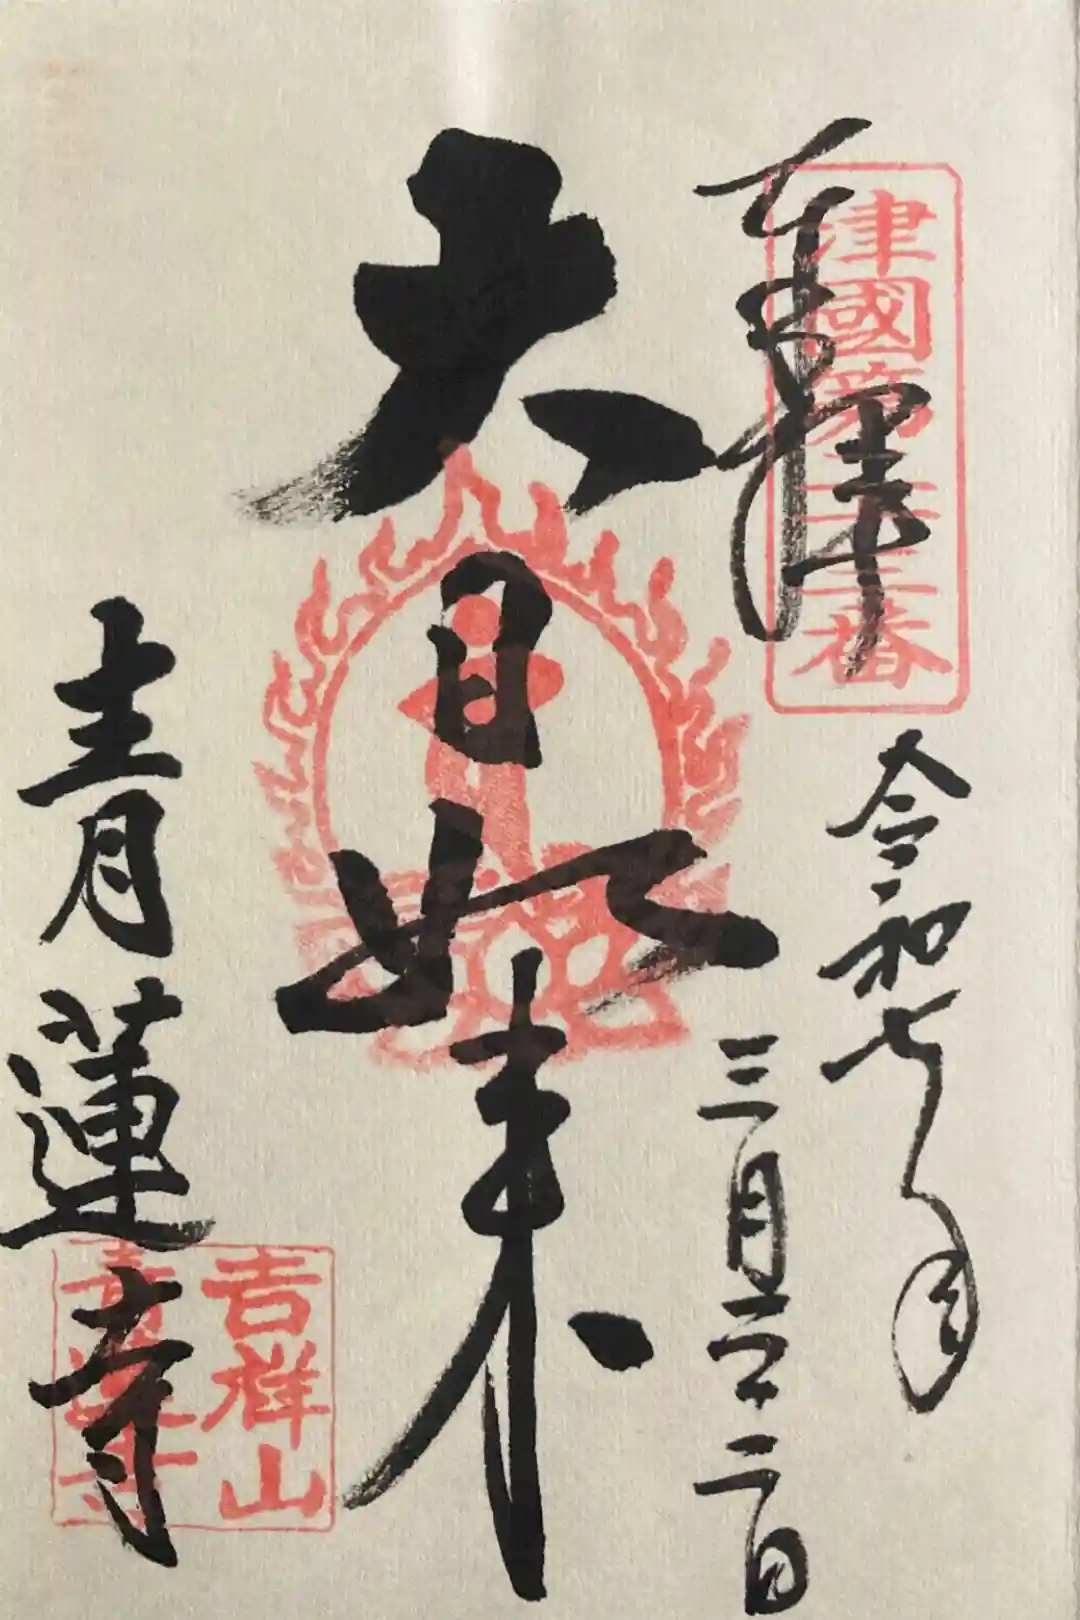 奉拝
津國第三十三番
令和七年
三月二十二日
大日如来
青蓮寺
吉祥山
青蓮寺